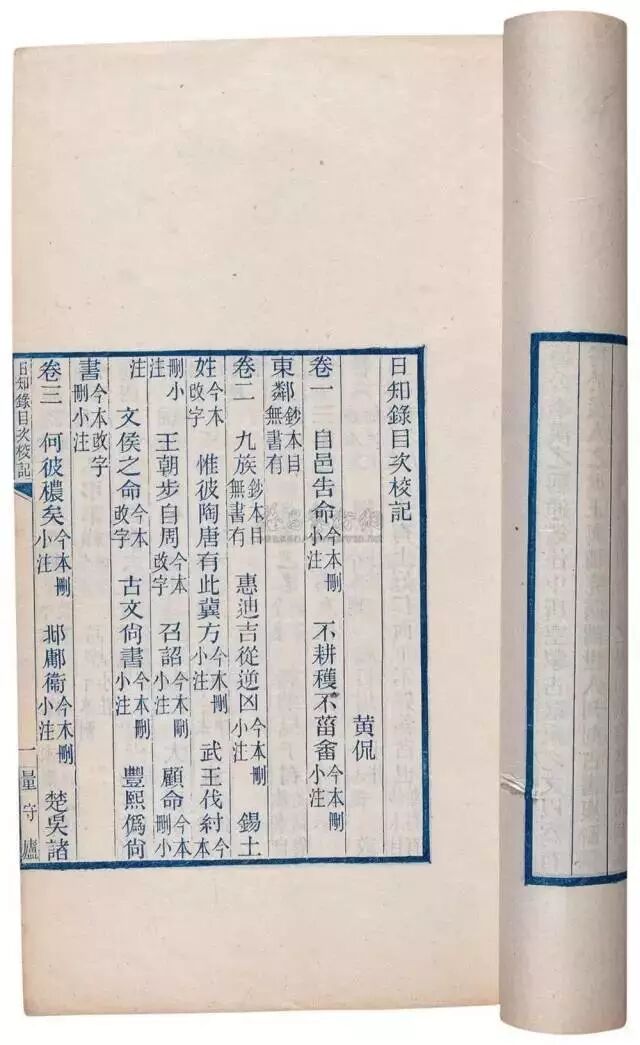 日知錄目次校記
黃侃
卷一 自邑告命今本刪小注 不耕穫不菑畬今本刪小注
東鄰鈔本目無書有
卷二 九族鈔本目無書有 惠迪吉從逆凶今本刪小注 錫土
姓今本改字 惟彼陶唐有此冀方今本刪小注 武王伐紂今本
刪小注 王朝步自周今本改字 召誥今本刪小注 顧命今本刪小
注 文侯之命今本改字 古文尙書今本刪小注 豐熙僞尙
書今本改字刪小注
卷三 何彼穠矣今本刪小注 邶鄘衞今本刪小注 楚吳諸
日知錄目次校記 一 量守廬